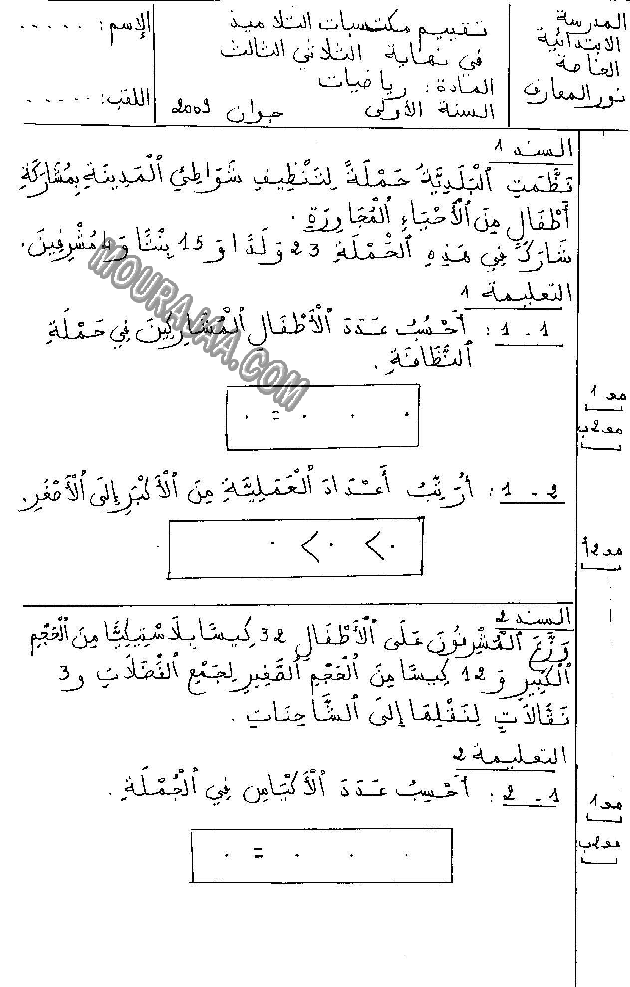 المدرسة
الابتدائية
الخاصة
نور المعارف
تقييم مكتسبات التلاميذ
في نهاية الثلاثي الثالث
المادة: رياضيات
السنة الأولى جوان 2009
الإسم: . . . . .
اللقب: . . . . . .
السند 1
نَظَّمَتِ الْبَلَدِيَّةُ حَمْلَةً لِتَنْظِيفِ شَوَاطِئِ الْمَدِينَةِ بِمُشَارَكَةِ
أَطْفَالٍ مِنَ الْأَحْيَاءِ الْمُجَاوِرَةِ.
شَارَكَ فِي هَذِهِ الْحَمْلَةِ 23 وَلَدًا وَ 15 بِنْتًا وَ 4 مُشْرِفِينَ.
التعليمة 1
1 - 1 : أَحْسُبُ عَدَدَ الْأَطْفَالِ الْمُشَارِكِينَ فِي حَمْلَةِ
النَّظَافَةِ.
. . . = .
مع 1
مع 2ب
1 - 2 : أُرَتِّبُ أَعْدَادَ الْعَمَلِيَّةِ مِنَ الْأَكْبَرِ إِلَى الْأَصْغَرِ.
. > . > .
مع 2أ
السند 2
وَزَّعَ الْمُشْرِفُونَ عَلَى الْأَطْفَالِ 32 كِيسًا بِلَاسْتِيكِيًّا مِنَ الْحَجْمِ
الْكَبِيرِ وَ 12 كِيسًا مِنَ الْحَجْمِ الصَّغِيرِ لِجَمْعِ الْفَضَلَاتِ وَ 3
نَقَّالَاتٍ لِنَقْلِهَا إِلَى الشَّاحِنَاتِ.
التعليمة 2
2 - 1 : أَحْسُبُ عَدَدَ الْأَكْيَاسِ فِي الْجُمْلَةِ.
. . . = .
مع 1
مع 2ب
MOURAJAA.COM